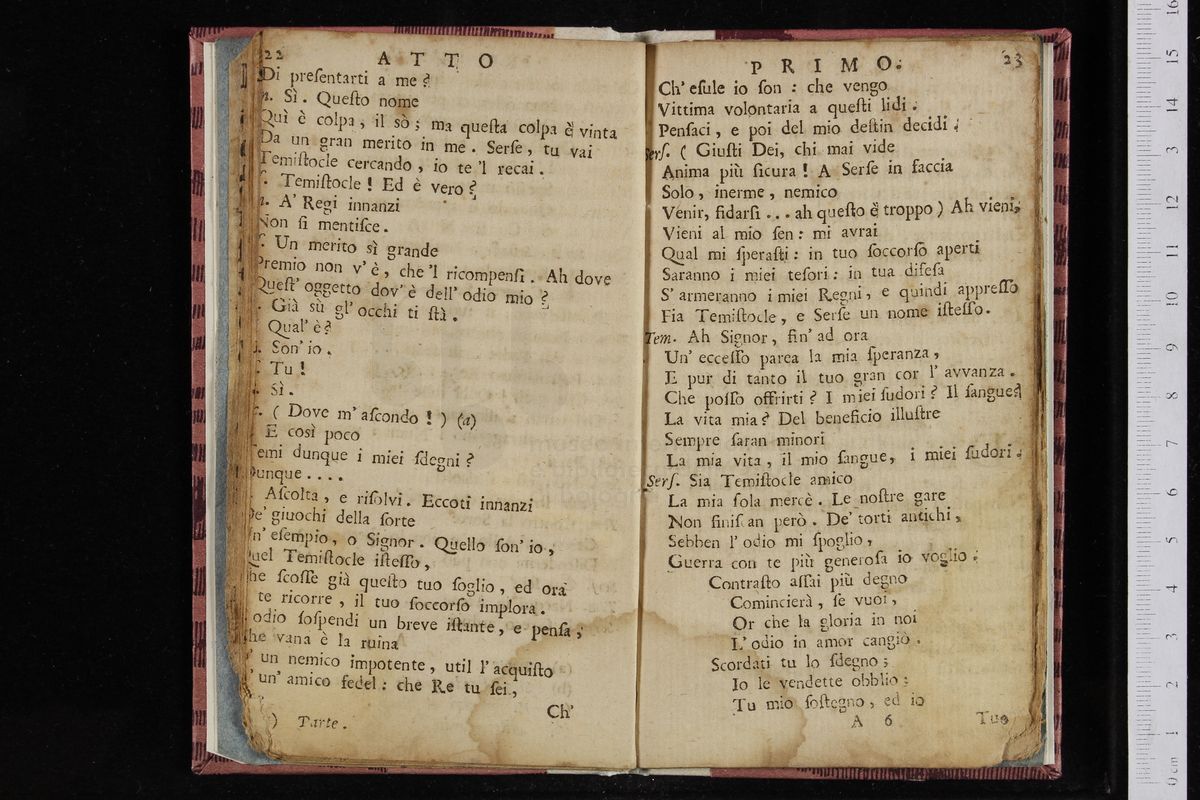 22 ATTO
Di preſentarti a me?
Sì. Queſto nome
Quì è colpa, il sò; ma queſta colpa è vinta
Da un gran merito in me. Serſe, tu vai
Temiſtocle cercando, io te 'l recai.
Temiſtocle! Ed è vero?
A' Regi innanzi
Non ſi mentiſce.
Un merito sì grande
Premio non v'è, che 'l ricompenſi. Ah dove
Queſt' oggetto dov'è dell' odio mio?
Già sù gl' occhi ti ſtà.
Qual'è?
Son' io.
Tu!
Sì.
(Dove m' aſcondo!) (a)
E così poco
Temi dunque i miei ſdegni?
Dunque....
Aſcolta, e riſolvi. Eccoti innanzi
De' giuochi della ſorte
n' eſempio, o Signor. Quello ſon' io,
uel Temiſtocle iſteſſo,
he ſcoſſe già queſto tuo ſoglio, ed ora
te ricorre, il tuo ſoccorſo implora.
odio ſoſpendi un breve iſtante, e penſa;
he vana è la ruina
un nemico impotente, util l' acquiſto
un' amico fedel: che Re tu ſei,
Ch'
) Parte.
PRIMO. 23
Ch' eſule io ſon: che vengo
Vittima volontaria a queſti lidi.
Penſaci, e poi del mio deſtin decidi.
Serſ. (Giuſti Dei, chi mai vide
Anima più ſicura! A Serſe in faccia
Solo, inerme, nemico
Venir, fidarſi... ah queſto è troppo) Ah vieni,
Vieni al mio ſen: mi avrai
Qual mi ſperaſti: in tuo ſoccorſo aperti
Saranno i miei teſori: in tua difeſa
S' armeranno i miei Regni, e quindi appreſſo
Fia Temiſtocle, e Serſe un nome iſteſſo.
Tem. Ah Signor, fin' ad ora
Un' ecceſſo parea la mia ſperanza,
E pur di tanto il tuo gran cor l' avvanza.
Che poſſo offrirti? I miei ſudori? Il ſangue?
La vita mia? Del beneficio illuſtre
Sempre ſaran minori
La mia vita, il mio ſangue, i miei ſudori.
Serſ. Sia Temiſtocle amico
La mia ſola mercè. Le noſtre gare
Non finiſcan però. De' torti antichi,
Sebben l' odio mi ſpoglio,
Guerra con te più generoſa io voglio.
Contraſto aſſai più degno
Comincierà, ſe vuoi,
Or che la gloria in noi
L' odio in amor cangiò.
Scordati tu lo ſdegno;
Io le vendette obblio;
Tu mio ſoſtegno, ed io
A 6 Tuo